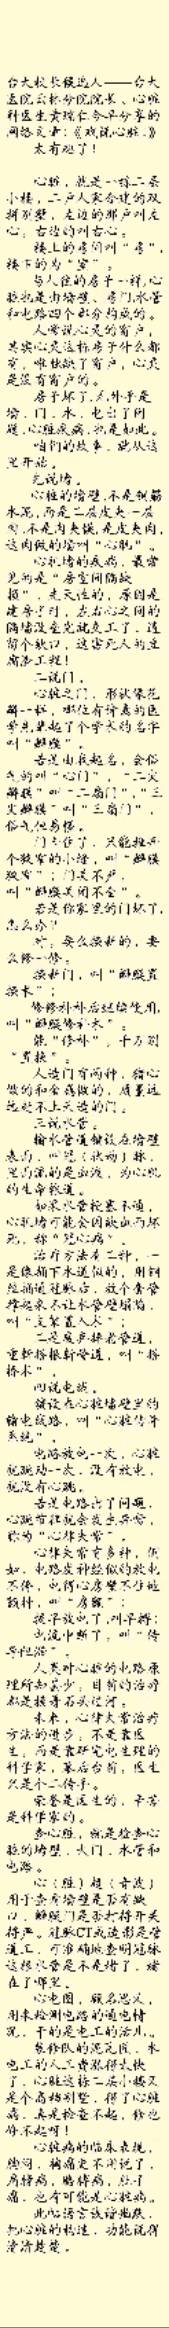 台大校长候选人——台大
医院云林分院院长、心脏
科医生黄瑞仁今早分享的
网络文章:《戏说心脏》
太有砲了!
心脏,就是一栋二层
小楼,二户人家合建的双
拼别墅,左边的那户叫左
心,右边的叫右心。
楼上的房间叫“房”,
楼下的为“室”。
与人住的房子一样,心
脏也是由墙壁、房门,水管
和电路四个部分构成的。
人常说心灵的窗户,
其实心灵这栋房子什么都
有,唯独缺了窗户,心灵
是没有窗户的。
房子坏了,无外乎是
墙、门、水、电出了问
题,心脏疾病,也是如此。
咱们的故事,就从这
里开始。
先说墙。
心脏的墙壁,不是钢筋
水泥,而是二层皮夹一层
肉,不是肉夹馍,是皮夹肉,
这肉做的墙叫“心肌”。
心肌墙的疾病,最常
见的是“房室间隔缺
损”,先天性的,原因是
建房子时,左右心之间的
隔墙没垒完就竣工了,遗
留个缺口,这害死人的豆
腐渣工程!
二说门。
心脏之门,形状像花
瓣一样,
叫“瓣膜”。
若是由我起名,会俗
气的叫“心门”,“二尖
瓣膜”叫“二扇门”,“三
尖瓣膜”叫“三扇门”,
俗气但易懂。
门卡住了,只能推开
个狭窄的小缝,叫“瓣膜
狭窄”;门关不严,
叫“瓣膜关闭不全”。
若是你家里的门坏了,
怎么办?
对,要么换新的,要
么修一修。
换新门,叫“瓣膜置
换术”;
修修补补后继续使用,
叫“瓣膜修补术”。
能“修补”,千万别
“置换”。
人造门有两种,猪心
做的和金属做的,质量远
远处不上天造的门。
三说水管。
输水管道铺设在墙壁
表面,叫冠(状动)脉,
里面流的是血液,为心肌
的生命线道。
如果水管栓塞不通,
心肌墙可能会因缺血而坏
死,称“冠心病”。
治疗方法有二种,一
是像捅下水道似的,用钢
丝捅通冠脉后,放个套管
撑起来不让水管壁塌陷,
叫“支架置入术”;
二是废弃掉老管道,
重新搭根新管道,叫“搭
桥术”。
四说电线。
铺设在心脏墙壁里的
输电线路,叫“心脏传导
系统”。
电路放电一次,心脏
就跳动一次,没有放电,
就没有心跳。
若是电路出了问题,
心跳节律就会发生异常,
称为“心律失常”。
心律失常有多种,例
如,电路发神经似的放电
不停,
颤抖,叫“房颤”;
电流中断了,叫“传
导阻滞”。
人类对心脏的电路原
理所知甚少,目前的治疗
都是摸着石头过河。
未来,心律失常治疗
方法的进步,不是靠医
生,而是靠研究电生理的
科学家,幕后台前,医生
只是个二传手。
荣誉是医生的,辛苦
是科学家的。
查心脏,就是检查心
脏的墙壁、大门、水管和
电路。
心(脏)超(音波)
用于查看墙壁是否有缺
口,瓣膜门是否打得开关
得严。冠脉CT或造影是管
道工,可准确地查明冠脉
这根水管是不是堵了,堵
在了哪里。
心电图,顾名思义,
用来检测电路的通电情
况,干的是电工的活儿。
装修队的泥瓦匠、水
电工的人工费涨得太快
了,心脏这栋二层小楼又
是个高档别墅,得了心脏
病,真是检查不起,修也
修不起呀!
心脏病的临床表现,
胸闷,胸痛更不用说了,
肩膀痛,胳膊痛,肚子
痛,也有可能是心脏病。
此帖语言诙谐幽默,
把心脏的构造、功能说得
清清楚楚。